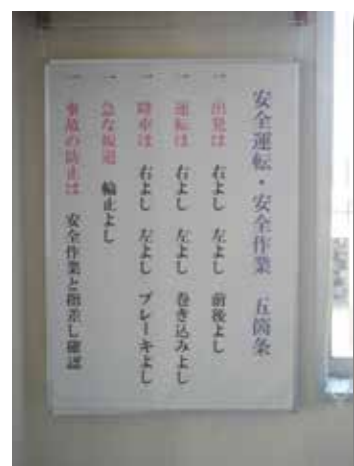 安全運転・安全作業 五箇条
一 出発は 右よし 左よし 前後よし
一 運転は 右よし 左よし 巻き込みよし
一 降車は 右よし 左よし ブレーキよし
一 急な坂道 輪止よし
一 事故の防止は 安全作業と指差し確認